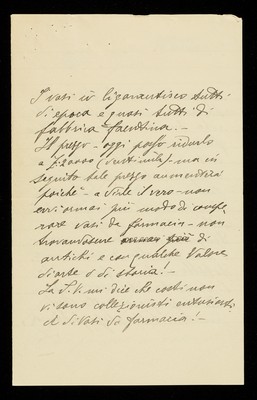 I vasi in Ligonantisco tutti
di epoca e quasi tutti di
fabbrica faentina. -
Il prezzo - oggi posso ridurlo
a £ 20000 (ventimila) - ma in
seguito tale prezzo aumenterà
poichè - a dirle il vero - non
evvi ormai più modo di compe
rare vasi da farmacia - non
trovandosene ormai più di
antichi e con qualche valore
d'arte o di storia! -
La S.V. mi dice che costì non
vi sono collezionisti entusiasti
di Vasi di farmacia! -